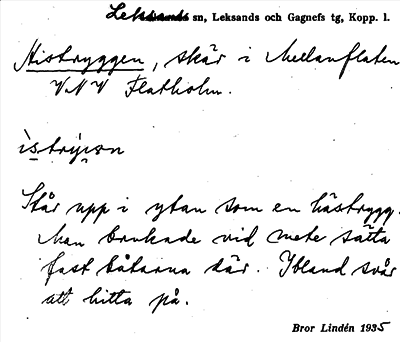 Leksands sn, Leksands och Gagnefs tg, Kopp. l.
Histryggen, skär i Mellanflaten
VNV Flatholm.
ìstrýggn
Står upp i ytan som en hästrygg.
Man brukade vid mete sätta
fast båtarna där. Ibland svår
att hitta på.
Bror Lindén 1935